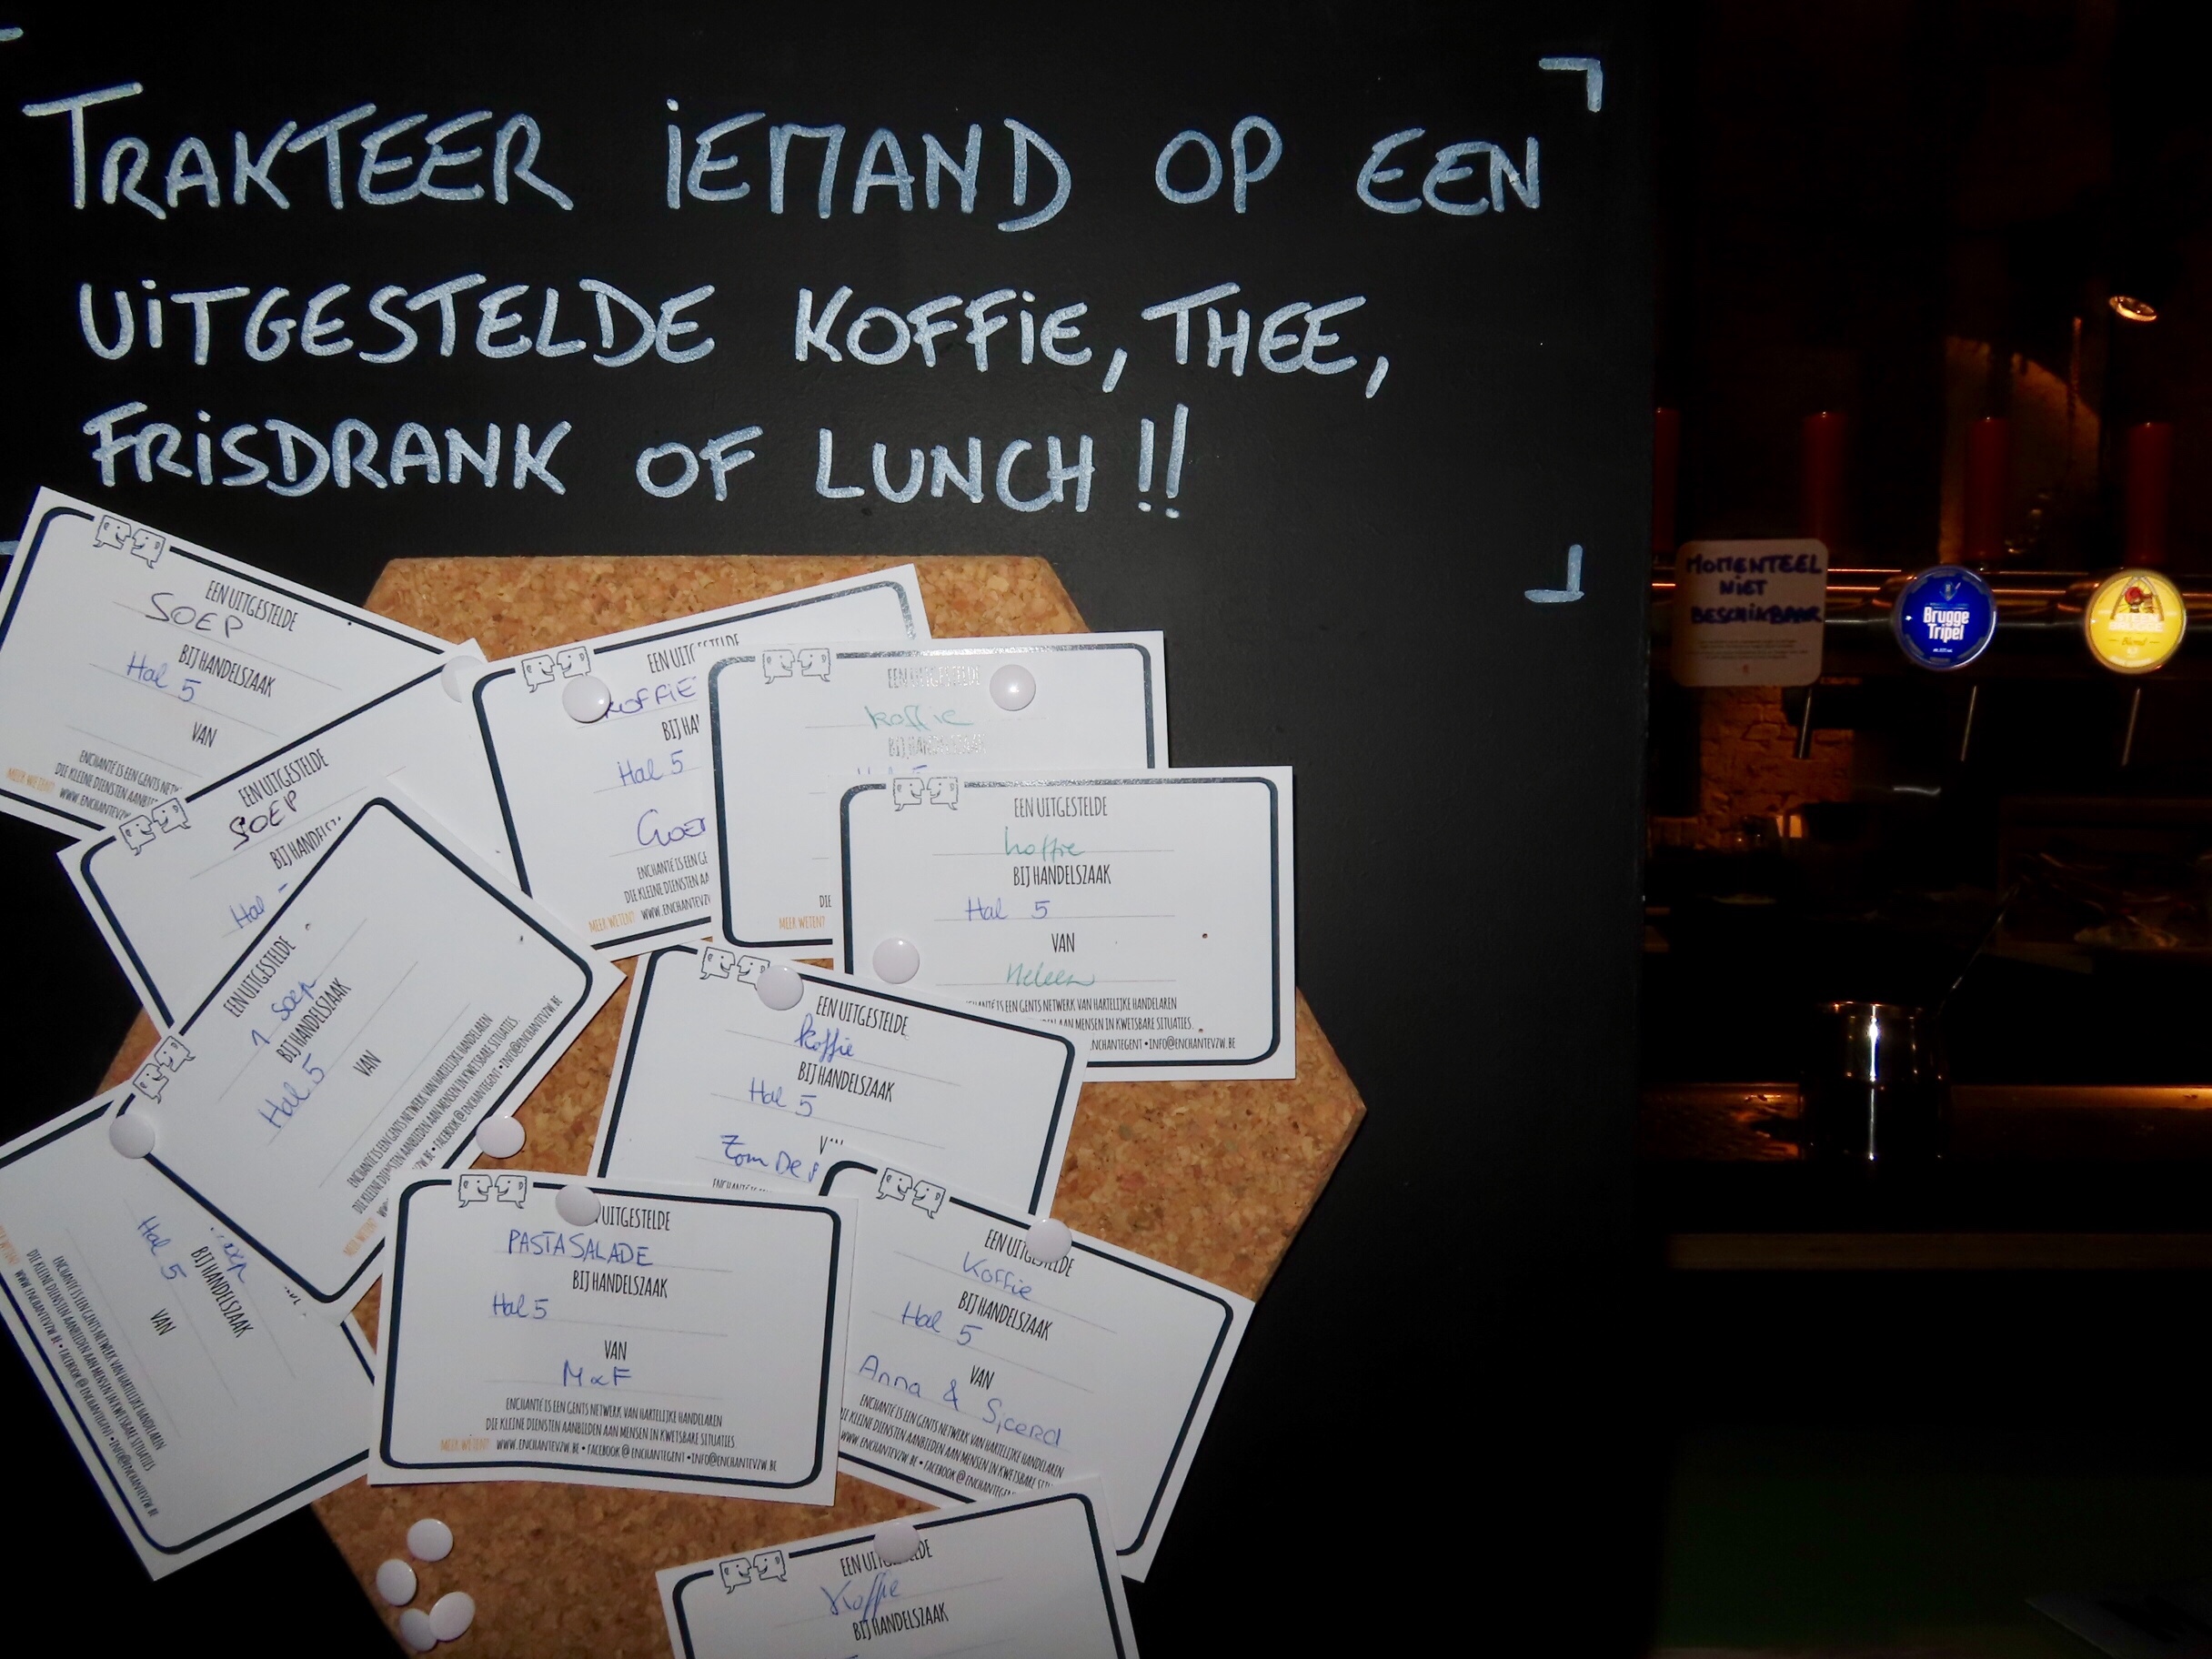 TRAKTEER IEMAND OP EEN
UITGESTELDE KOFFIE, THEE,
FRISDRANK OF LUNCH!!
EEN UITGESTELDE
SOEP
BIJ HANDELSZAAK
Hal 5
VAN
MEER WETEN?
EEN UITGESTELDE
SOEP
Hal
EEN UITGESTELDE
1 Soep
BIJ HANDELSZAAK
Hal 5
VAN
ENCHANTÉ IS EEN GENTS NETWERK VAN HARTELIJKE HANDELAREN
DIE KLEINE DIENSTEN AANBIEDEN AAN MENSEN IN KWETSBARE SITUATIES.
MEER WETEN? FACEBOOK @ ENCHANTEGENT • INFO@ENCHANTEVZW.BE
KOFFIE
Hal 5
ENCHANTÉ IS EEN
DIE KLEINE DIENSTEN
MEER WETEN?
EEN UITGESTELDE
koffie
BIJ HANDELSZAAK
MEER WETEN?
EEN UITGESTELDE
koffie
BIJ HANDELSZAAK
Hal 5
VAN
Heleen
IS EEN GENTS NETWERK VAN HARTELIJKE HANDELAREN
AAN MENSEN IN KWETSBARE SITUATIES.
• INFO@ENCHANTEVZW.BE
EEN UITGESTELDE
koffie
BIJ HANDELSZAAK
Hal 5
Tom De
BIJ HANDELSZAAK
Hal 5
VAN
ENCHANTÉ IS EEN GENTS NETWERK VAN HARTELIJKE HANDELAREN
DIE KLEINE DIENSTEN AANBIEDEN AAN MENSEN IN KWETSBARE SITUATIES
WWW.ENCHANTEVZW.BE • FACEBOOK @ ENCHANTEGENT • INFO@ENCHANTEVZW.BE
UITGESTELDE
PASTASALADE
BIJ HANDELSZAAK
Hal 5
VAN
M & F
ENCHANTÉ IS EEN GENTS NETWERK VAN HARTELIJKE HANDELAREN
DIE KLEINE DIENSTEN AANBIEDEN AAN MENSEN IN KWETSBARE SITUATIES
MEER WETEN? WWW.ENCHANTEVZW.BE • FACEBOOK @ ENCHANTEGENT • INFO@ENCHANTEVZW.BE
EEN UITGESTELDE
Koffie
BIJ HANDELSZAAK
Hal 5
VAN
Anna & Sjoerd
ENCHANTÉ IS EEN GENTS NETWERK VAN HARTELIJKE HANDELAREN
DIE KLEINE DIENSTEN AANBIEDEN AAN MENSEN IN KWETSBARE
WWW.ENCHANTEVZW.BE • FACEBOOK @
EEN
Koffie
BIJ HANDELSZAAK
MOMENTEEL
NIET
BESCHIKBAAR
Brugge
Tripel
Blond